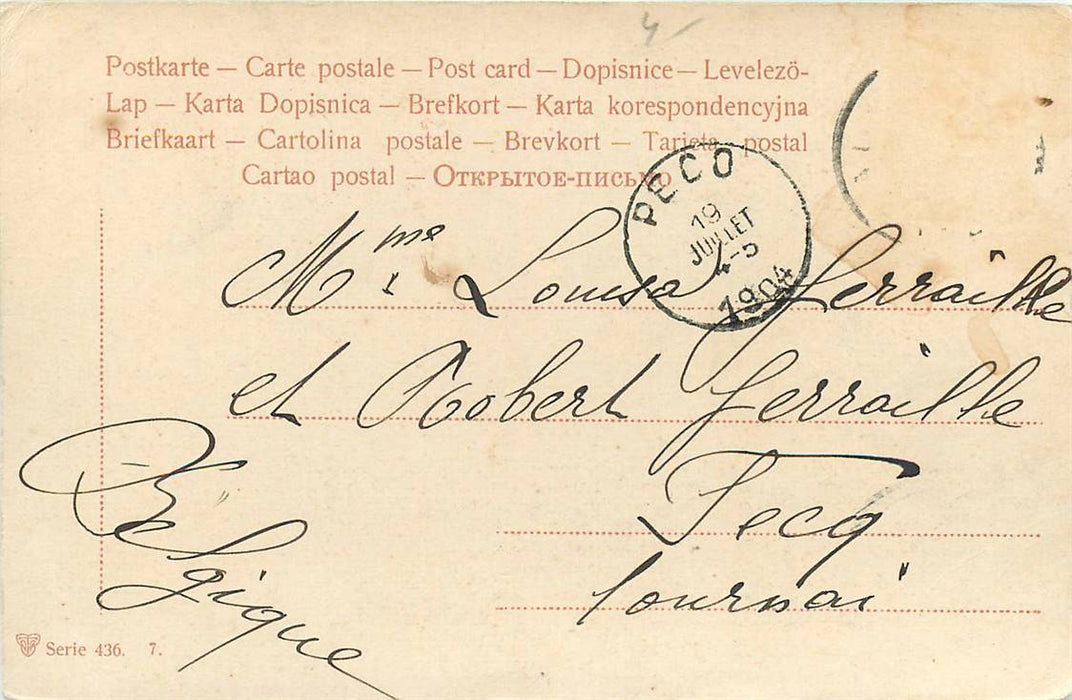 4
Postkarte — Carte postale — Post card — Dopisnice — Levelezö-
Lap — Karta Dopisnica — Brefkort — Karta korespondencyjna
Briefkaart — Cartolina postale — Brevkort — Tarjeta postal
Cartao postal — Открытое-письмо
PECQ
19
JUILLET
4-5
1904
Mme Louisa Ferraille
et Robert Ferraille
Pecq
Tournai
Belgique
Serie 436. 7.